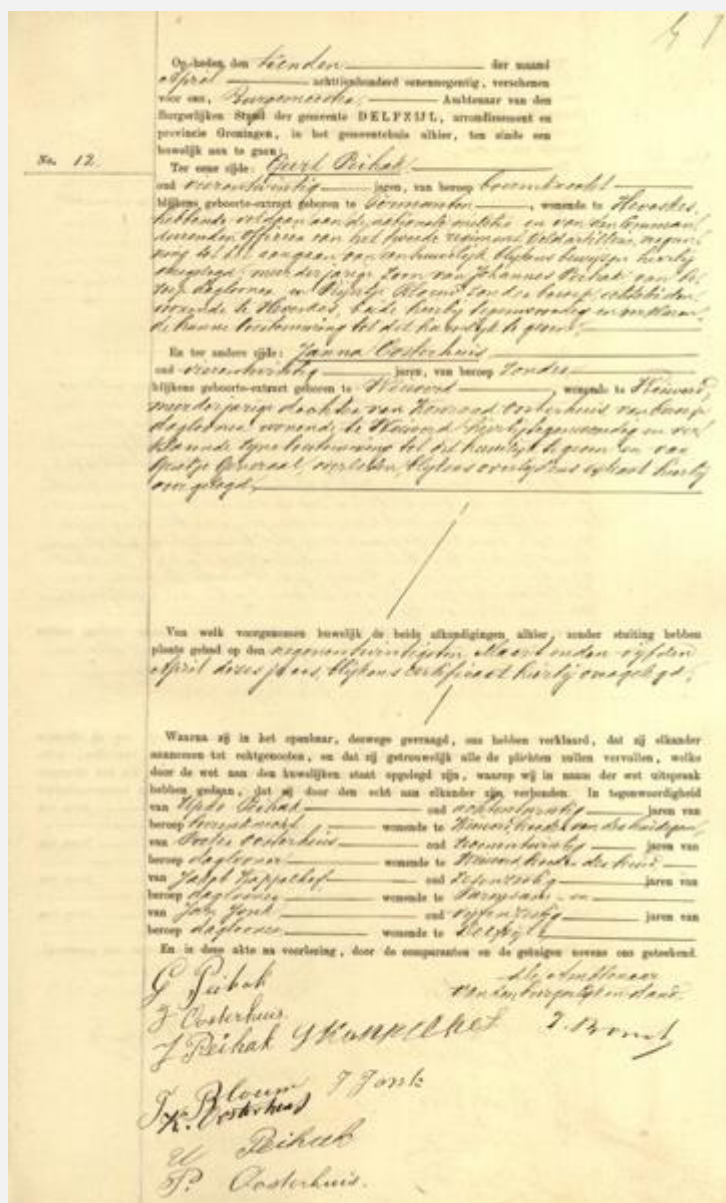 Op heden den tienden der maand
April achttienhonderd eenennegentig, verschenen
voor ons, Burgemeester, Ambtenaar van den
Burgerlijken Stand der gemeente DELFZIJL, arrondissement en
provincie Groningen, in het gemeentehuis alhier, ten einde een
huwelijk aan te gaan:
No. 12.
Ter eene zijde: Geert Peihak
oud vierentwintig jaren, van beroep boerenknecht
blijkens geboorte-extract geboren te, wonende te Heveskes,
hebbende voldaan aan de nationale militie en van den Comman
deerenden Officier van het tweede regiment Veldartillerie vergun
ning tot het aangaan van een huwelijk blijkens bewijzen hierbij
overgelegd, meerderjarige zoon van Johannes Peihak van be
roep daglooner en Bloem zonder beroep, echtelieden,
wonende te Heveskes, beide hierbij tegenwoordig en verklaren
de hunne toestemming tot dit huwelijk te geven;
En ter andere zijde: Janna Oosterhuis
oud vierentwintig jaren, van beroep zonder
blijkens geboorte-extract geboren te Weiwerd, wonende te Weiwerd,
meerderjarige dochter van Oosterhuis van beroep
daglooner, wonende te Weiwerd, hierbij tegenwoordig en ver
klarende zijne toestemming tot dit huwelijk te geven en van
overleden, blijkens overlijdens extract hierbij
overgelegd.
Van welk voorgenomen huwelijk de beide afkondigingen alhier, zonder stuiting hebben
plaats gehad op den negenentwintigsten Maart en den vijfden
April dezes jaars, blijkens certificaat hierbij overgelegd.
Waarna zij in het openbaar, deswege gevraagd, ons hebben verklaard, dat zij elkander
aannemen tot echtgenooten, en dat zij getrouwelijk alle de plichten zullen vervullen, welke
door de wet aan den huwelijken staat opgelegd zijn, waarop wij in naam der wet uitspraak
hebben gedaan, dat zij door den echt aan elkander zijn verbonden. In tegenwoordigheid
van Peihak oud achtentwintig jaren van
beroep wonende te Weiwerd, broeder van den bruidegom,
van Oosterhuis oud tweeentwintig jaren van
beroep daglooner wonende te Weiwerd, broeder der bruid
van Kappelhof oud zesenzestig jaren van
beroep daglooner wonende te Farmsum en
van Jonk oud vijfenzestig jaren van
beroep daglooner wonende te Delfzijl
En is deze akte na voorlezing, door de comparanten en de getuigen nevens ons geteekend.
G Peihak
De Ambtenaar
van den burgerlijken stand.
J Oosterhuis.
J Peihak
T Bloem
J Jonk
K. Oosterhuis
U Peihak
P. Oosterhuis.